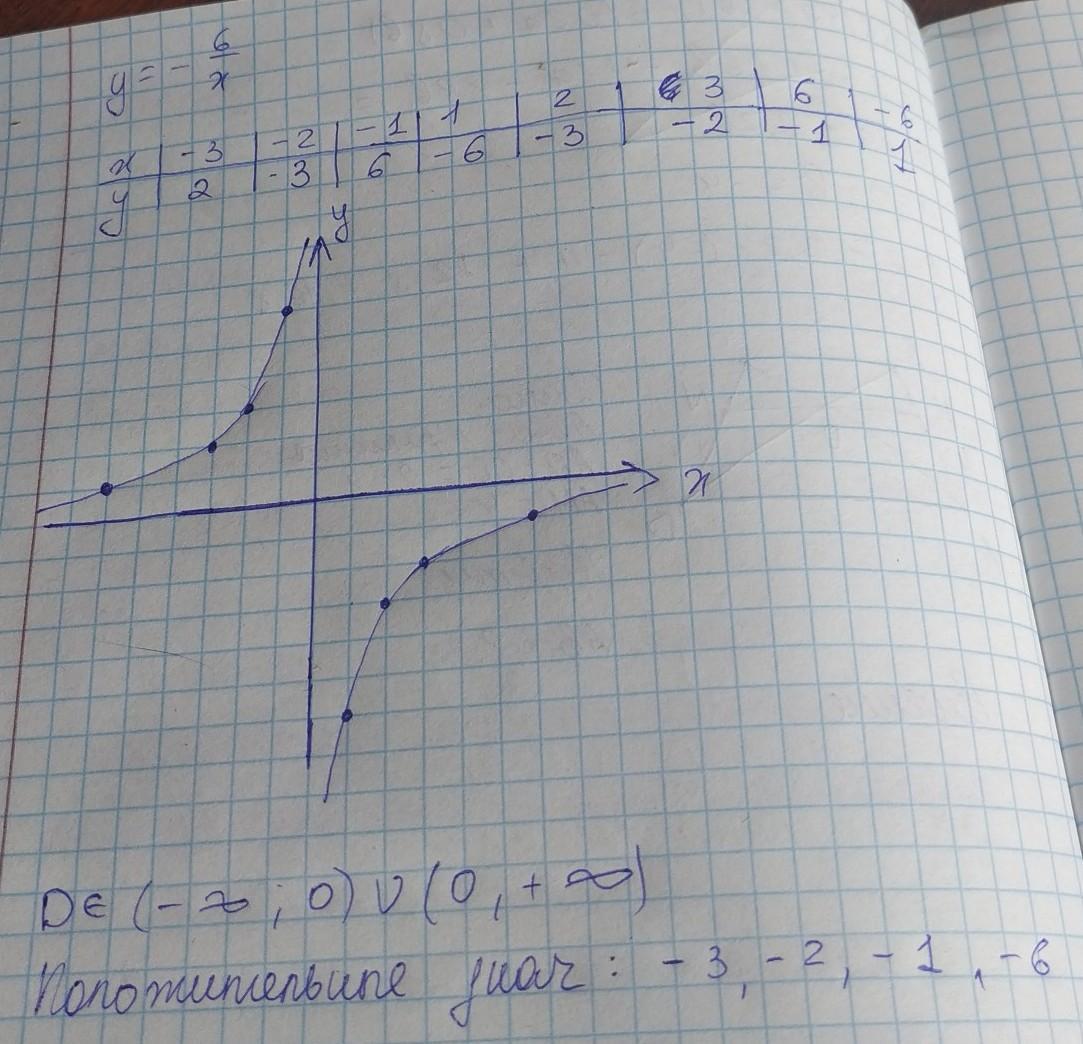 y = - 6/x
x | -3 | -2 | -1 | 1 | 2 | 3 | 6 | -6
y | 2 | -3 | 6 | -6 | -3 | -2 | -1 | 1
y
x
D∈ (-∞; 0) ∪ (0, +∞)
Положительные знач: -3, -2, -1, -6